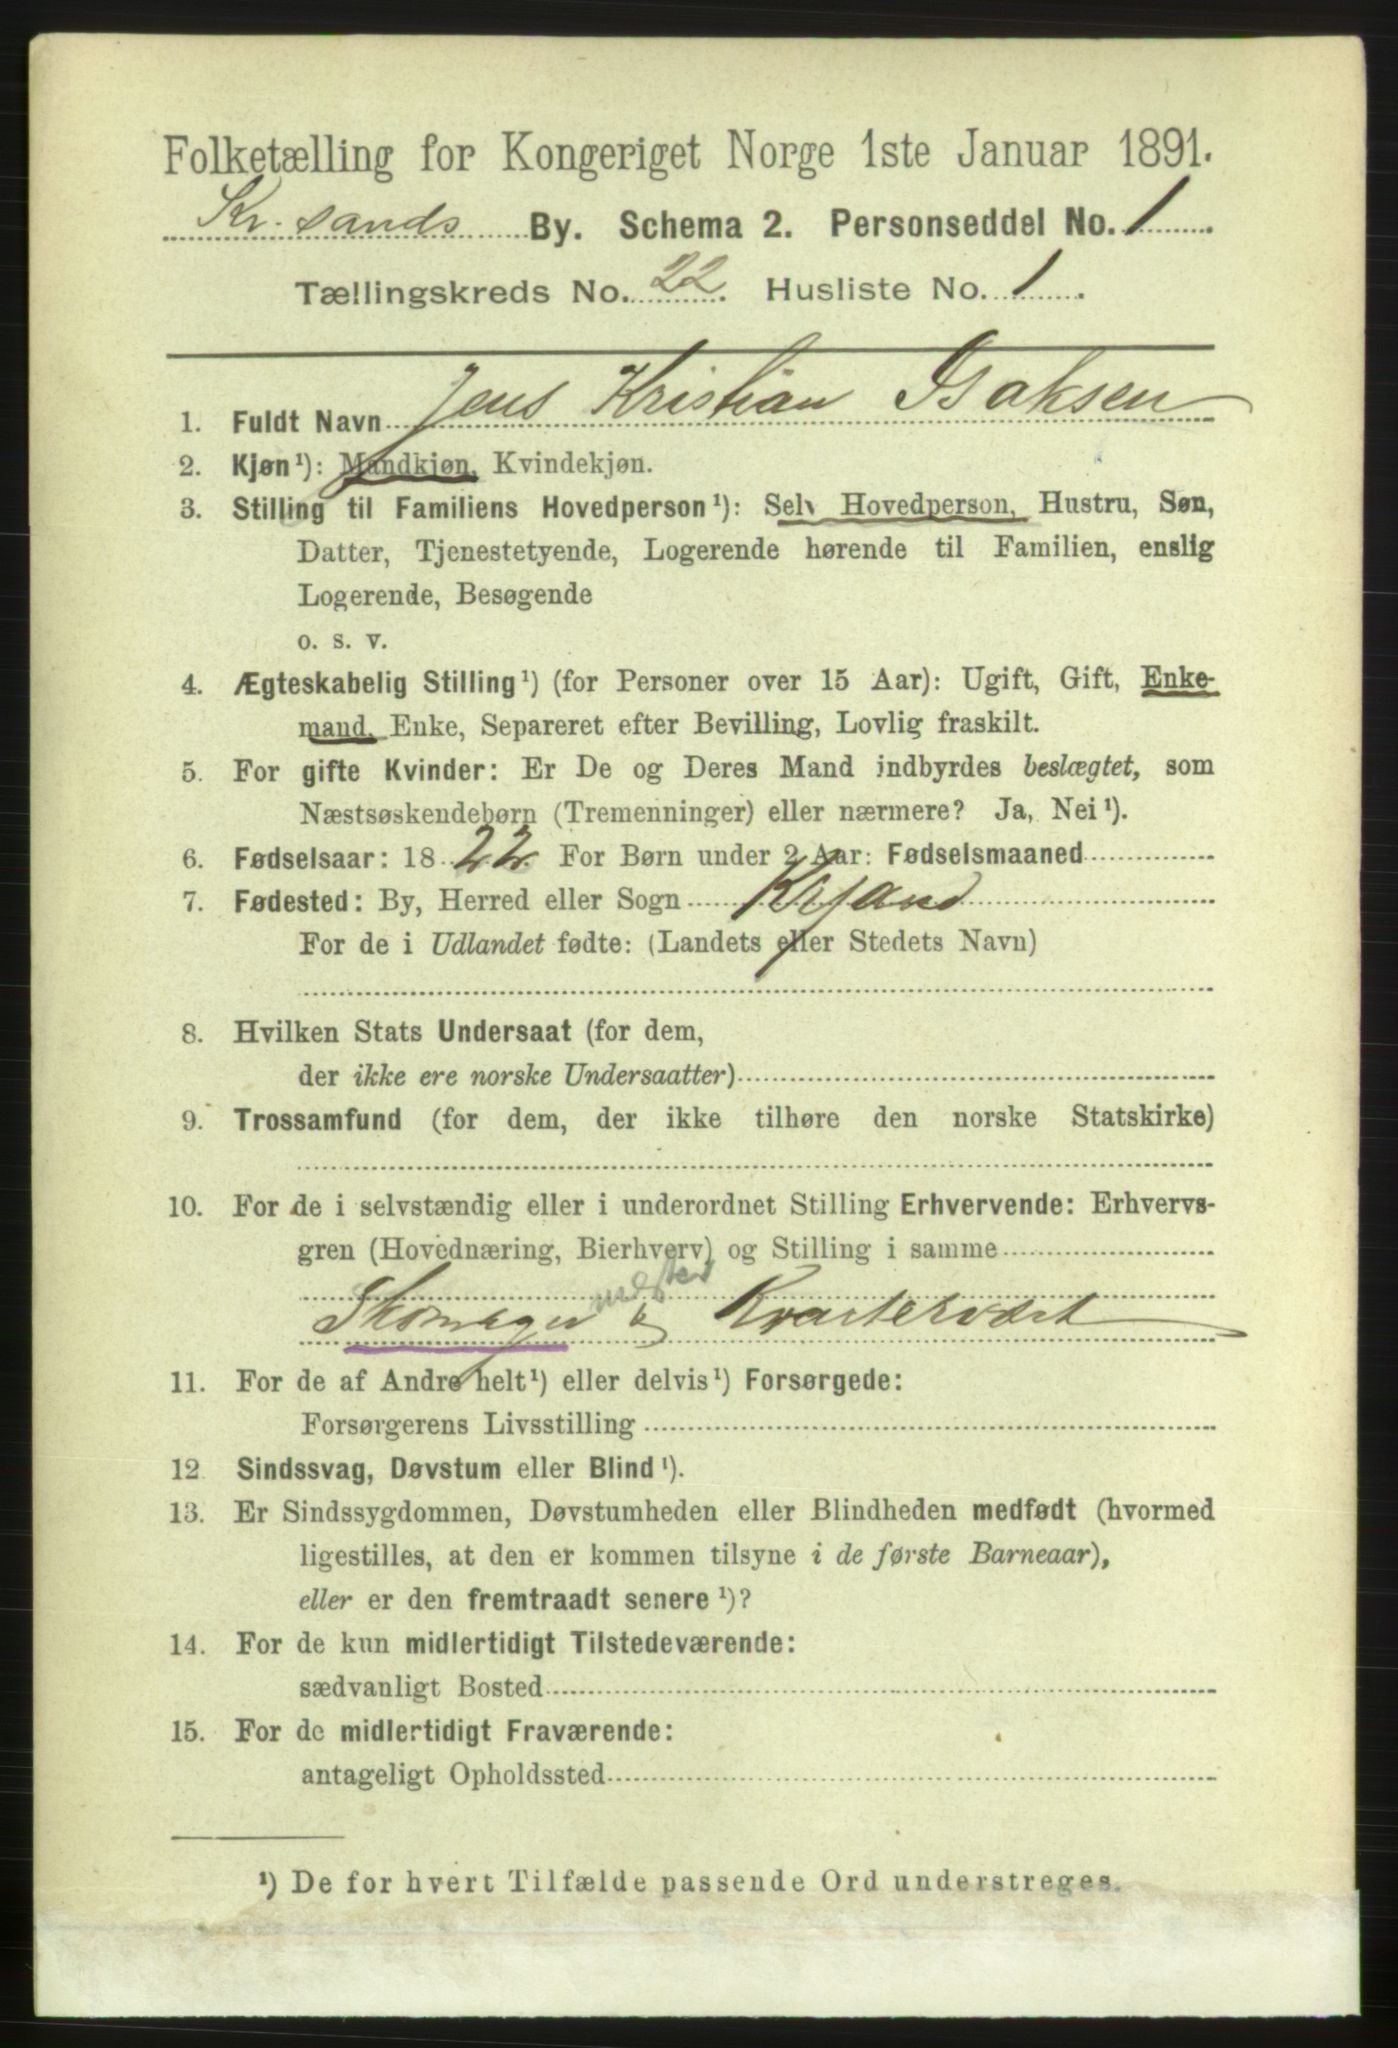 Folketælling for Kongeriget Norge 1ste Januar 1891.
Kr.sands By. Schema 2. Personseddel No. 1
Tællingskreds No. 22. Husliste No. 1.
1. Fuldt Navn Jens Kristian Isaksen
2. Kjøn¹): Mandkjøn, Kvindekjøn.
3. Stilling til Familiens Hovedperson¹): Selv Hovedperson, Hustru, Søn,
Datter, Tjenestetyende, Logerende hørende til Familien, enslig
Logerende, Besøgende
o. s. v.
4. Ægteskabelig Stilling¹) (for Personer over 15 Aar): Ugift, Gift, Enke-
mand, Enke, Separeret efter Bevilling, Lovlig fraskilt.
5. For gifte Kvinder: Er De og Deres Mand indbyrdes beslægtet, som
Næstsøskendebørn (Tremenninger) eller nærmere? Ja, Nei¹).
6. Fødselsaar: 1822. For Børn under 2 Aar: Fødselsmaaned
7. Fødested: By, Herred eller Sogn Krsand
For de i Udlandet fødte: (Landets eller Stedets Navn)
8. Hvilken Stats Undersaat (for dem,
der ikke ere norske Undersaatter)
9. Trossamfund (for dem, der ikke tilhøre den norske Statskirke)
10. For de i selvstændig eller i underordnet Stilling Erhvervende: Erhvervs-
gren (Hovednæring, Bierhverv) og Stilling i samme
Skomager mester & Kvartervært
11. For de af Andre helt¹) eller delvis¹) Forsørgede:
Forsørgerens Livsstilling
12 Sindssvag, Døvstum eller Blind¹).
13. Er Sindssygdommen, Døvstumheden eller Blindheden medfødt (hvormed
ligestilles, at den er kommen tilsyne i de første Barneaar),
eller er den fremtraadt senere¹)?
14. For de kun midlertidigt Tilstedeværende:
sædvanligt Bosted
15. For de midlertidigt Fraværende:
antageligt Opholdssted
¹) De for hvert Tilfælde passende Ord understreges.